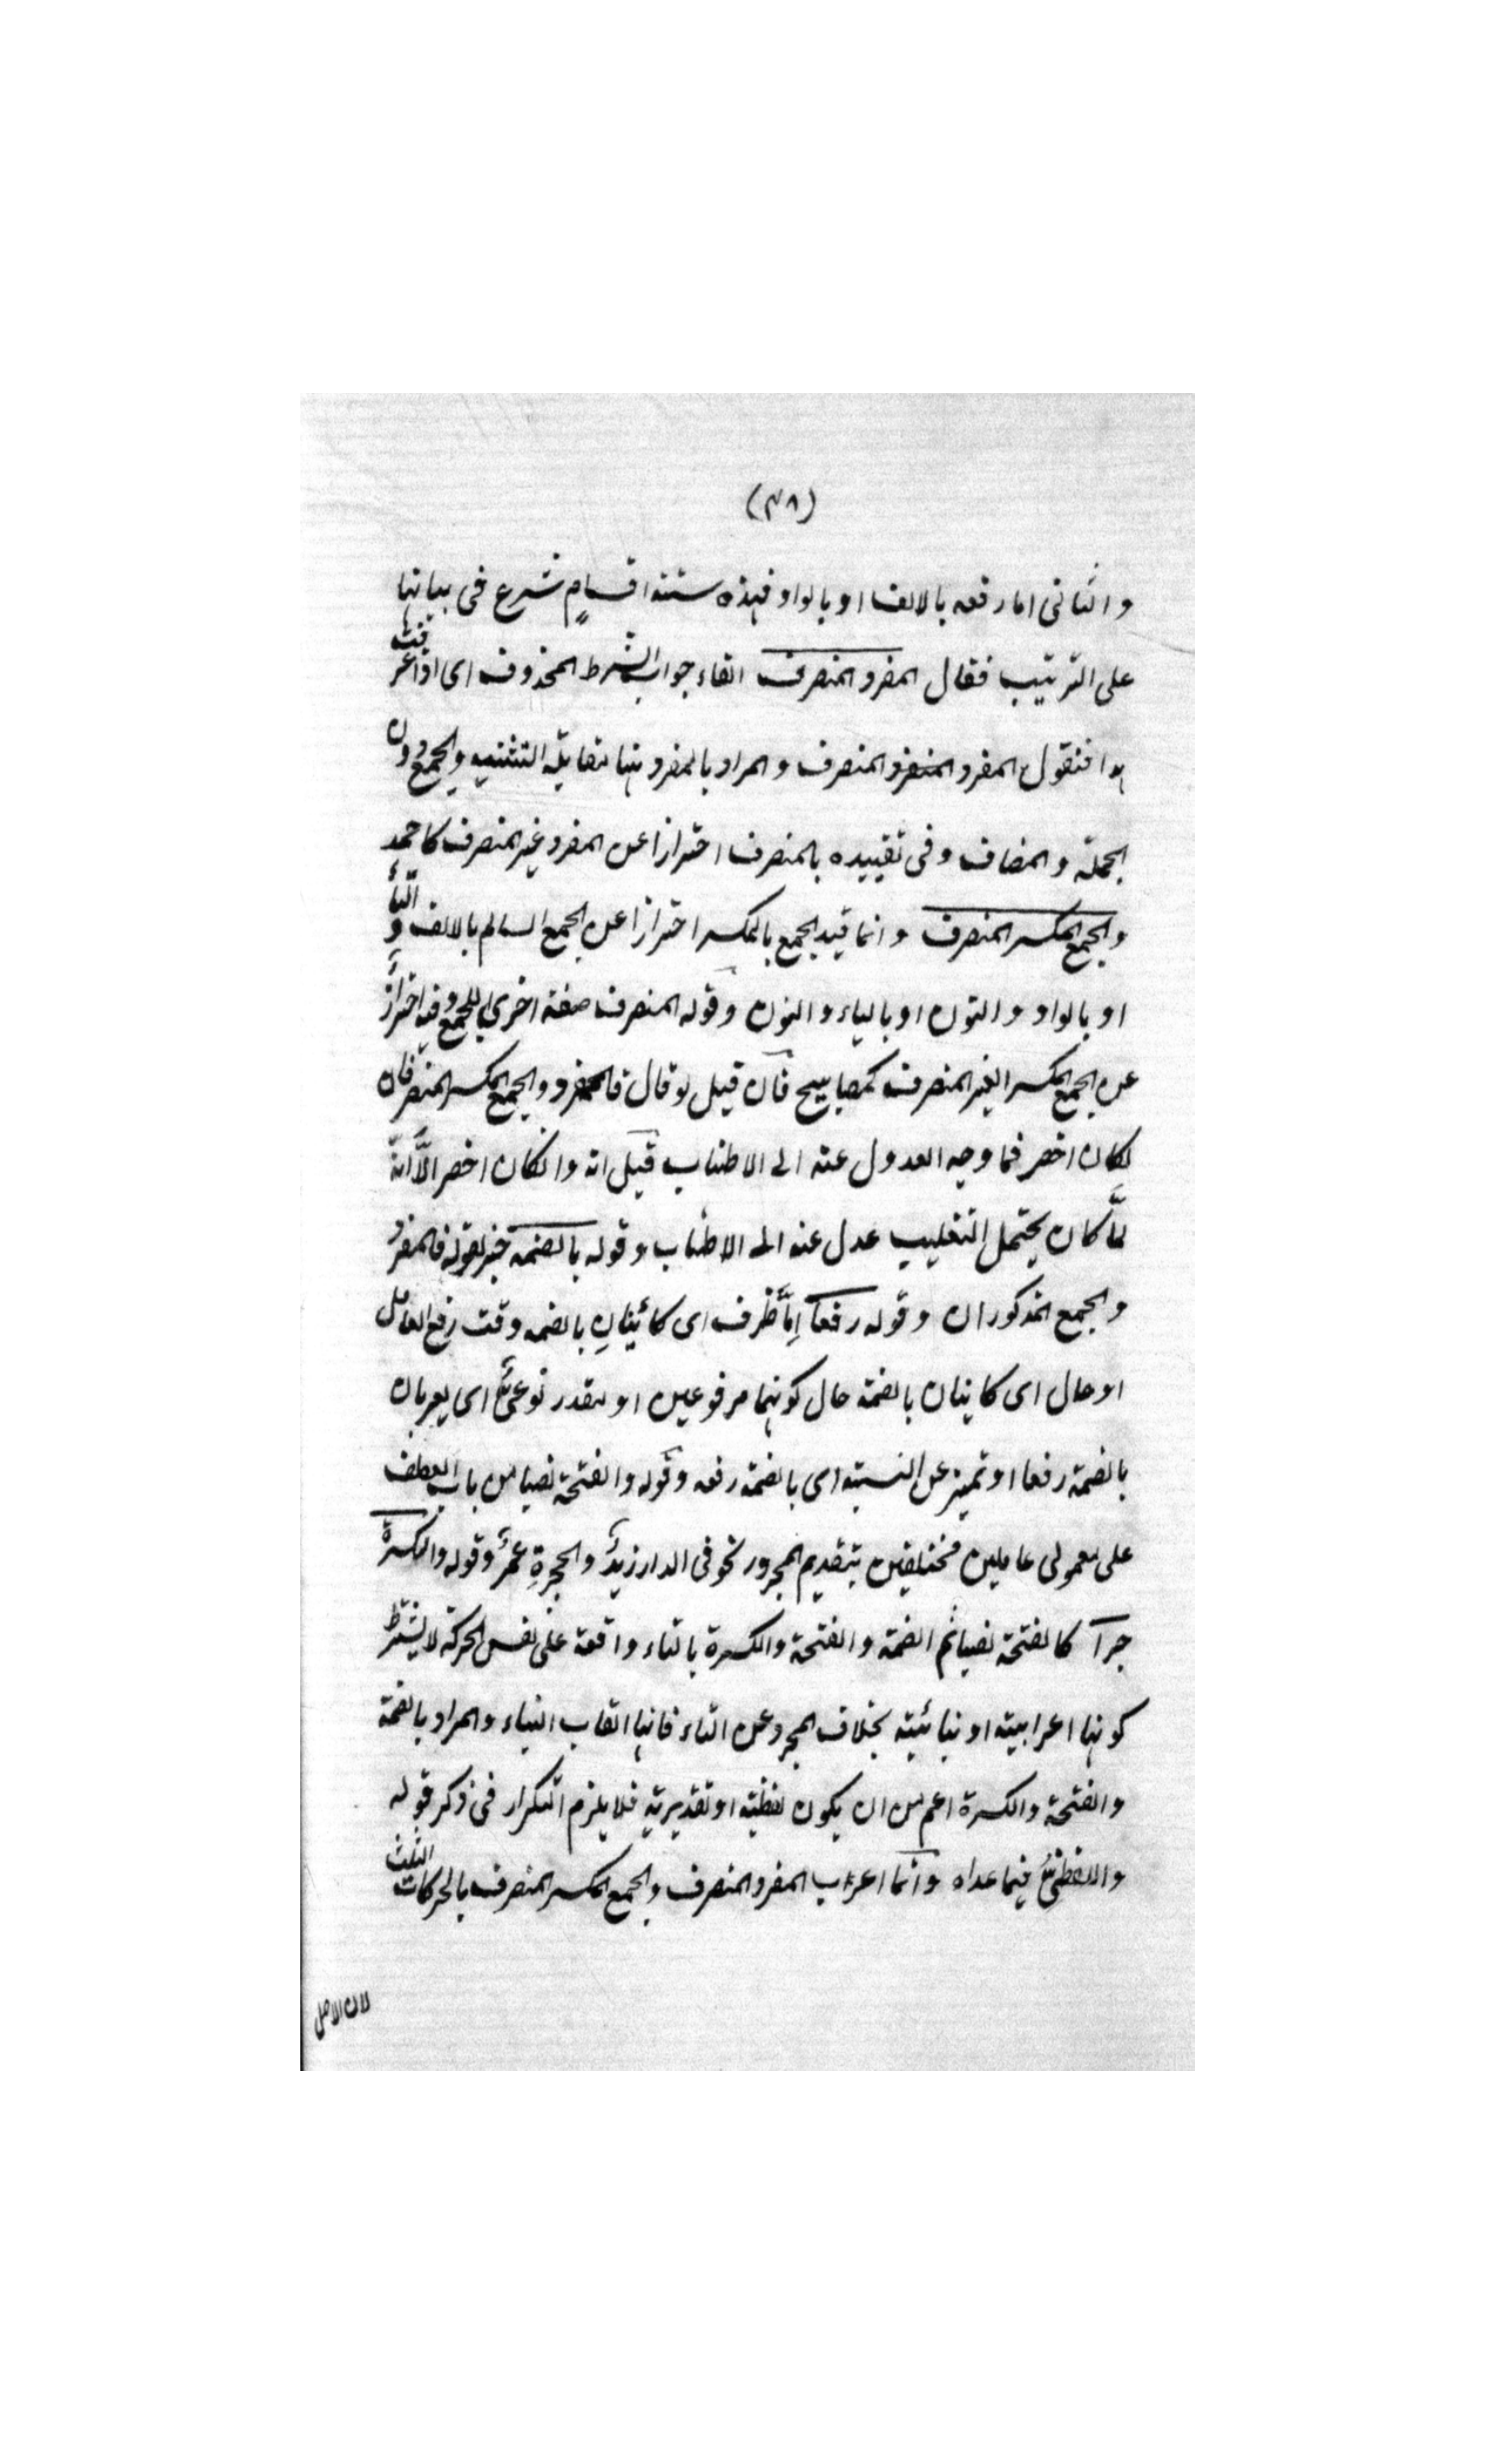 (٣٨)
والثانى اما رفعه بالالف او بالواو فهذه ستة اقسامٍ شرع فى بيانها
على الترتيب فقال المفرد المنصرف الفاء جواب الشرط المحذوف اى اذا عرفت
هذا فنقول المفرد المنصرف والمراد بالمفرد ههنا مقابلة التثنيه والجمع دون
الجملة والمضاف وفى تقييده بالمنصرف احترازا عن المفرد غير المنصرف كاحمد
والجمع المكسر المنصرف وانما قيد الجمع بالمكسر احترازا عن الجمع السالم بالالف والتاء
او بالواو والنون او بالياء والنون وقوله المنصرف صفة اخرى للجمع وفيه احترازٌ
عن الجمع المكسر الغير المنصرف كمصابيح فان قيل لو قال فالمفرد والجمع المكسر المنصرفان
لكان اخصر فما وجه العدول عنه الى الاطناب قيل انه وان كان اخصر الّا انّه
لمّا كان يحتمل التغليب عدل عنه الى الاطناب وقوله بالضمة خبر لقوله فالمفردُ
والجمع المذكوران وقوله رفعا اِمّا ظرف اى كائينانِ بالضمه وقت رفع العامل
او حال اى كاينان بالضمة حال كونهما مرفوعين او مصدر نوعىٌّ اى يعربان
بالضمة رفعا او تميز عن النسبة اى بالضمة رفعه وقوله والفتحة نصبا من باب العطف
على معمولى عاملين مختلفين بتقديم المجرور نحو فى الدار زيدٌ والحجرةِ عمرٌ وقوله والكسرة
جرا كالفتحة نصبا ثم الضمة والفتحة والكسرة بالتاء واقعة على نفس الحركة لا يشترط
كونها اعرابيته او بنائيته بخلاف المجرد عن التاء فانها القاب البناء والمراد بالضمة
والفتحة والكسرة اعم من ان يكون لفظيّة او تقديرية فلا يلزم التكرار فى ذكر قوله
واللفظىُّ فيما عداه وانما اعراب المفرد المنصرف والجمع المكسر المنصرف بالحركات الثلث
لان الاصل